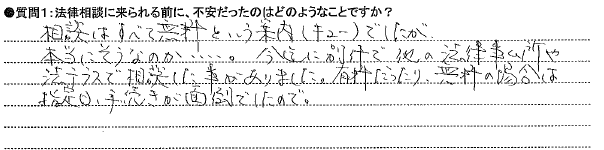 ●質問1：法律相談に来られる前に、不安だったのはどのようなことですか？
相談はすべて無料という案内(キュー)でしたが、
本当にそうなのか‥‥。今迄に別件で他の法律事ム所や
法テラスで相談した事がありました。有料だったり、無料の場合は
指定日、手続きが面倒でしたので。